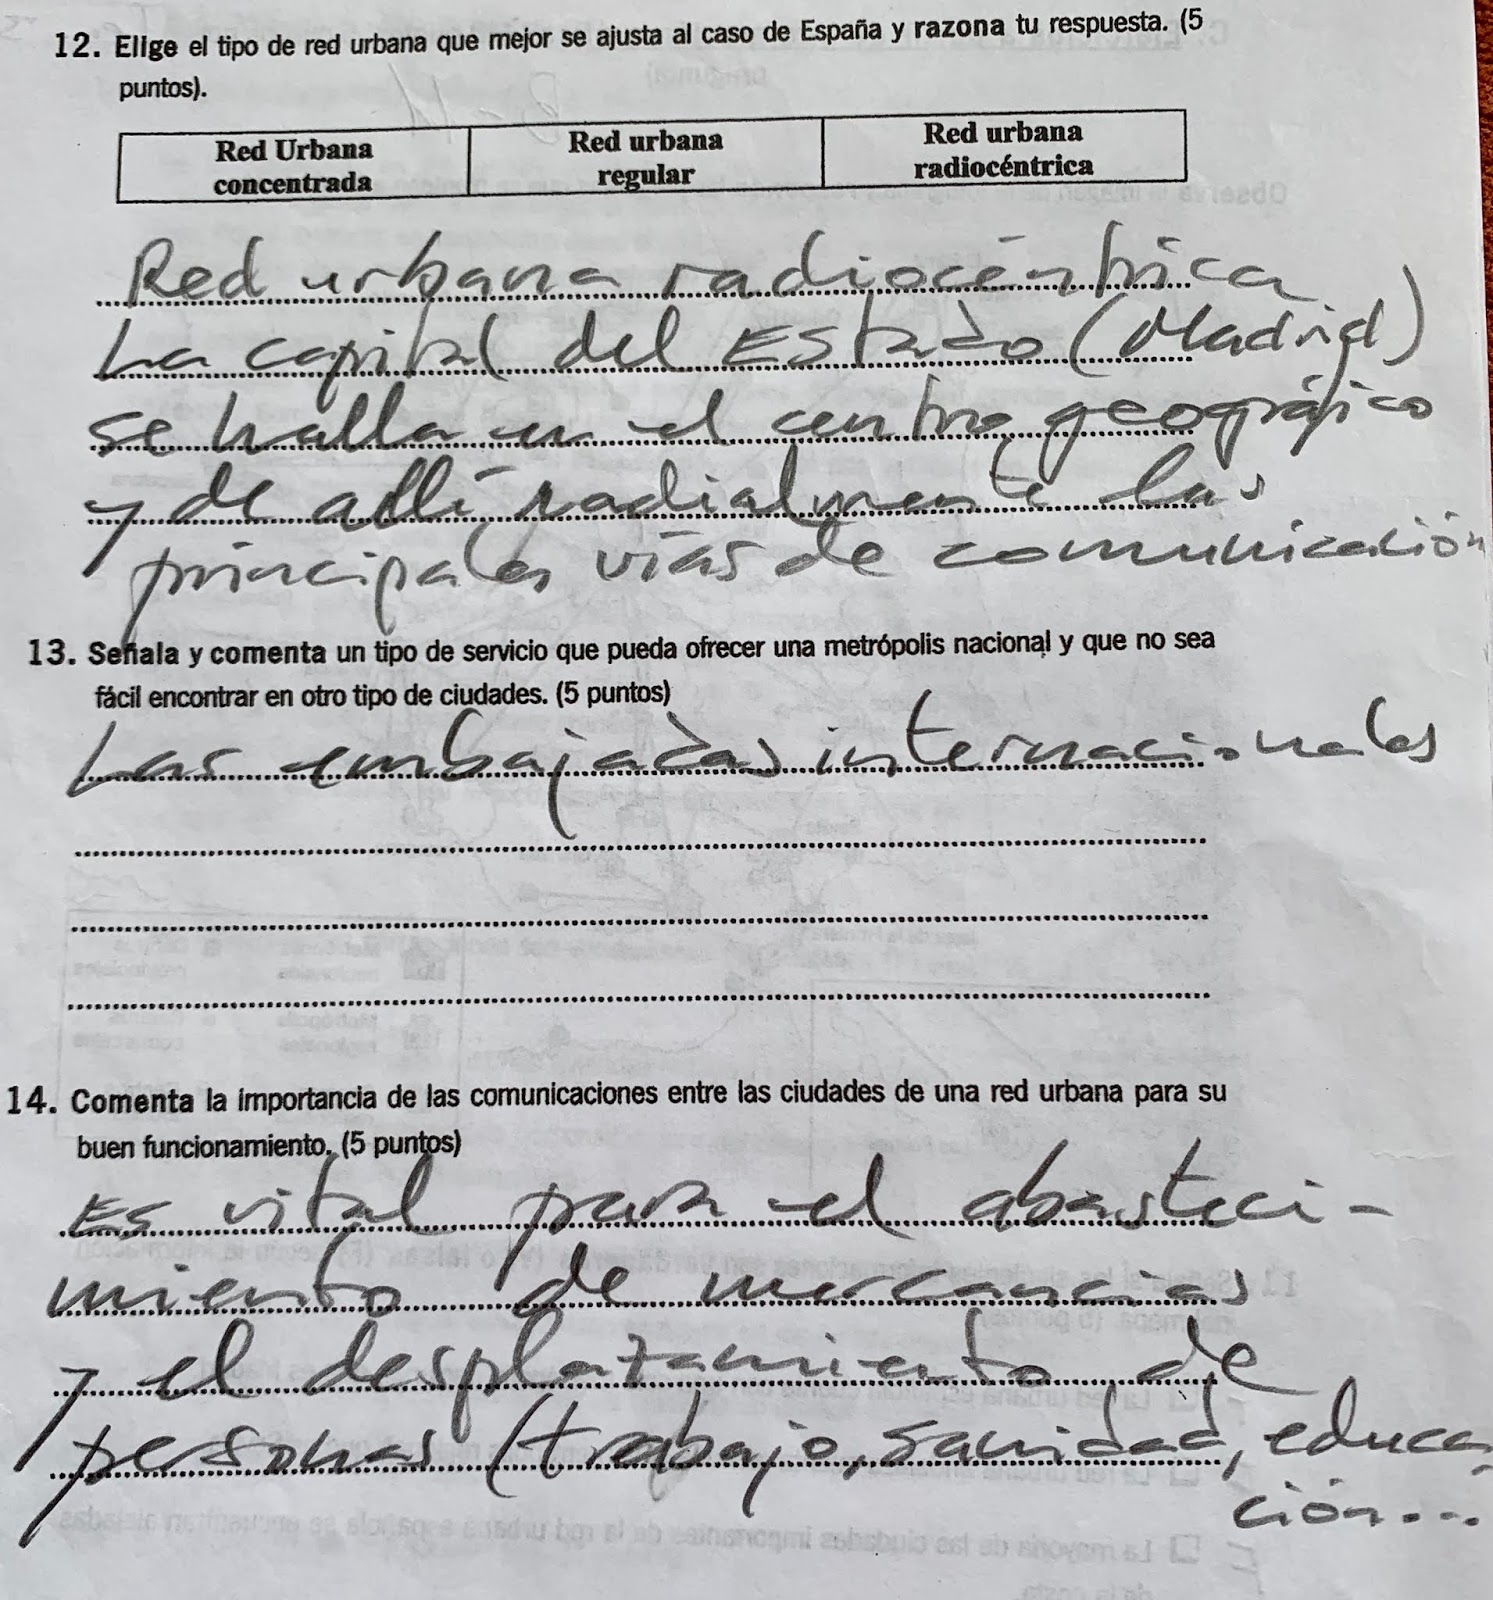 12. Elige el tipo de red urbana que mejor se ajusta al caso de España y razona tu respuesta. (5
puntos).
Red Urbana concentrada
Red urbana regular
Red urbana radiocéntrica
Red urbana radiocéntrica
La capital del Estado (Madrid)
se halla en el centro geográfico
y de allí radialmente las
principales vías de comunicación
13. Señala y comenta un tipo de servicio que pueda ofrecer una metrópolis nacional y que no sea
fácil encontrar en otro tipo de ciudades. (5 puntos)
Las embajadas internacionales
14. Comenta la importancia de las comunicaciones entre las ciudades de una red urbana para su
buen funcionamiento. (5 puntos)
Es vital para el abasteci-
miento de mercancias
y el desplazamiento de
personas (trabajo, sanidad, educa
ción...